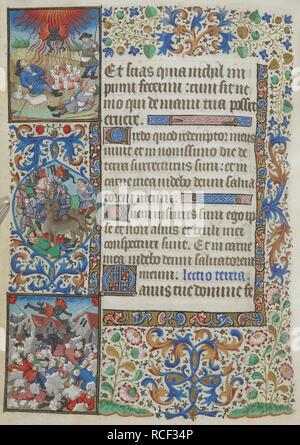 Et scias quia nichil im
pium fecerim: cum sit ne
mo qui de manu tua possit
eruere.
Credo quod redemptor meus
vivit et in novissimo die de
terra surrecturus sum: et in
carne mea videbo deum salva
torem meum.
Quem visurus sum ego ip
se et non alius et oculi mei
conspecturi sunt. Et in carne
mea videbo deum salvatorem
meum. lectio tercia.
Manus tue domine fe